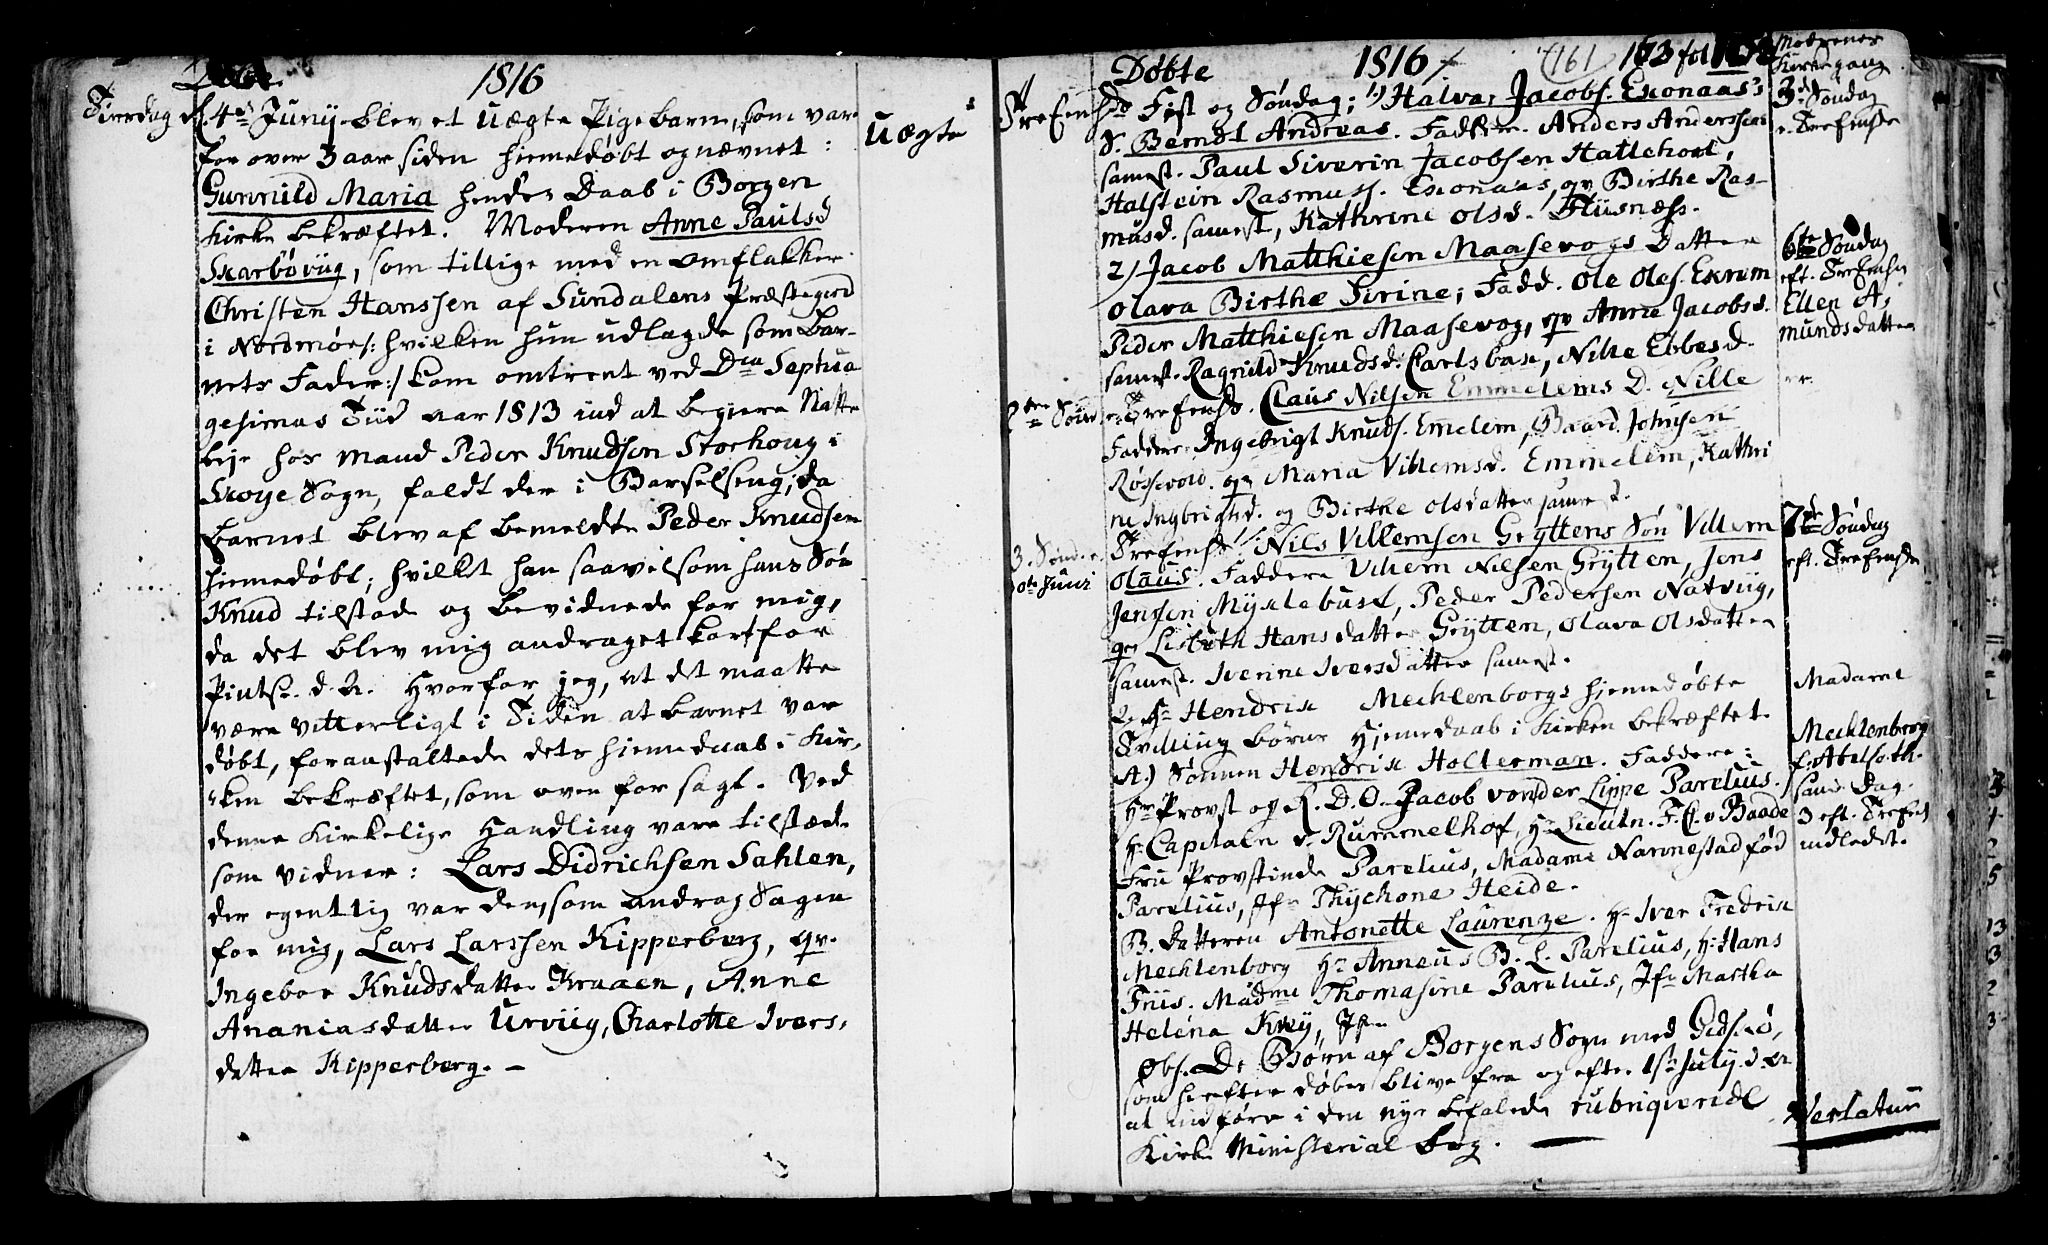 Døbte
1816
Tirsdag d. 4de Junij blev et Uægte Pigebarn, som var
for over 3 aar siden hiemedøbt og nævnet:
Gunnild Maria hendes Daab i Borgen
Kirke bekræftet. Moderen Anne Paulsd
Skarbøviig, som tillige med en omflakker
Christen Hanssen af Sundalens Præstegield
i Nordmør /: hvilken hun udlagde som Bar-
nets Fader :/ kom omtrent ved Dca Septua
gesimas Tiid aar 1813 ind at begiere Natte
leje hos mand Peder Knudsen Storhoug i
Skoye Sogn, faldt der i Barselseng, da
Barnet blev af bemeldte Peder Knudsen
hiemedøbt; hvilket han saavelsom hans Søn
Knud tilstode og bevidnede for mig,
da det blev mig andraget kort for
Pintse d. A. Hvorfor jeg, at det maatte
være vitterligt i Tiden at barnet var
døbt, foranstaltede dets hiemedaab i Kir-
ken bekræftet, som oven for sagt. Ved
denne Kirkelige Handling vare tilstæde
som vidner: Lars Didrichsen Sahlen,
der egentlig var den, som androg Sagen
for mig, Lars Larssen Kipperberg, qv.
Ingebor Knudsdatter Kraaen, Anne
Ananiasdatter Urviig, Charlotte Ivers-
datter Kipperberg. -
Uægte
Døbte
1816
161
173 fol
Moderenes
Kirkegang
TreEenhds Fest og Søndag; 1) Halvar Jacobs. Exonaas's
S. Berndt Andreas. Faddere. Anders Anderssen
samest. Paul Siverin Jacobsen Hattehoel,
Halstein Rasmuss. Exonaas, qv. Birthe Ras-
musd. samest, Kathrine Olsd. Fliisnæss.
2) Jacob Matthiesen Maasevogs Datter
Olava Birthe Sirine; Fadd. Ole Oles. Exrem
Peder Matthiesen Maasevog, qv Anne Jacobsd.
samest. Ragnild Knudsd. Carlsbax, Nille Ebbesd.
2den Sønd. e. Trefensh. Claus Nilsen Emmelems D. Nille
Faddere. Ingebrigt Knuds. Emelem, Baard Johnsen
Røssevold. qv. Maria Villemsd. Emmelem, Kathri
ne Ingbrigtsd. og Birthe Olsdatter samest.
3. Sønd. e. Trefensh. Nils Villemsen Gryttens Søn Villem
30te Juni Olaus. Faddere Villem Nilsen Grytten, Jens
Jenssen Myxlebust, Peder Pedersen Natviig,
qv Lisbeth Hansdatter Grytten, Olava Olsdatter
samest. Iverine Iversdatter samest.
2. Hr Hendrix Mechlenborgs hjemedøbte
Tvilling børns Hjemedaab i Kirken bekræftet.
A.) Sønnen Hendrix Holterman. Faddere:
Hr Provst og R. D. O. Jacob von der Lippe Parelius.
Hr Capitaln v. Rummelhof, Hr Lieutn. F. C. v Baade
Fru Provstinde Parelius, Madame Narmestad fød
Parelius, Jfr Thychone Heide.
B. Datteren Antonette Laurenze. Hr Iver Fredrix
Mechlenborg Hr Anneus B. L. Parelius, Hr Hans
Friis. Madme Thomasine Parelius, Jfr Martha
Helena Krey, Jfr
Obs. De Børn af Borgens Sogn med Gidsxø,
som herefter døbes blive fra og efter 1ste July d. A.
at indføre i den nye befalede rubriqverede
Kirke Ministerial bog.
3de Søndag
e. Trefensh
6te Søndag
eft. Trefensh
Ellen A-
mundsdatter
7de Søndag
eft. Trefensh
Madame
Mechlenborg
f. Abelseth.
samme Dag
3 eft. Trefensh
indledet.
Verlatur